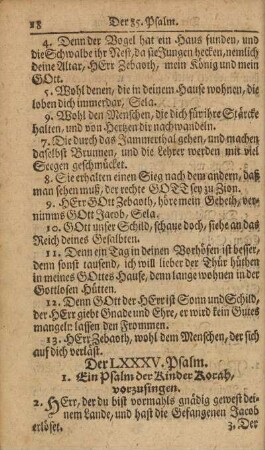 18 Der 85. Psalm.
4. Denn der Vogel hat ein Haus funden, und
die Schwalbe ihr Nest, da sie Jungen hecken, nemlich
deine Altar, HErr Zebaoth, mein König und mein
GOtt.
5. Wohl denen, die in deinem Hause wohnen, die
loben dich immerdar, Sela.
9. Wohl den Menschen, die dich für ihre Stärcke
halten, und von Hertzen dir nachwandeln.
7. Die durch das Jammerthal gehen, und machen
daselbst Brunnen, und die Lehrer werden mit viel
Seegen geschmücket.
8. Sie erhalten einen Sieg nach dem andern, daß
man sehen muß, der rechte GOTT sey zu Zion.
9. HErr GOtt Zebaoth, höre mein Gebeth, ver-
nimms GOtt Jacob, Sela.
10. GOtt unser Schild, schaue doch, siehe an das
Reich deines Gesalbten.
11. Denn ein Tag in deinen Vorhöfen ist besser,
denn sonst tausend, ich will lieber der Thür hüthen
in meines GOttes Hause, denn lange wohnen in der
Gottlosen Hütten.
12. Denn GOtt der HErr ist Sonn und Schild,
der HErr giebt Gnade und Ehre, er wird kein Gutes
mangeln lassen den Frommen.
13. HErr Zebaoth, wohl dem Menschen, der sich
auf dich verläst.
Der LXXXV. Psalm.
1. Ein Psalm der Kinder Korah,
vorzusingen.
2. HErr, der du bist vormahls gnädig gewest dei-
nem Lande, und hast die Gefangenen Jacob
erlöset. 3. Der